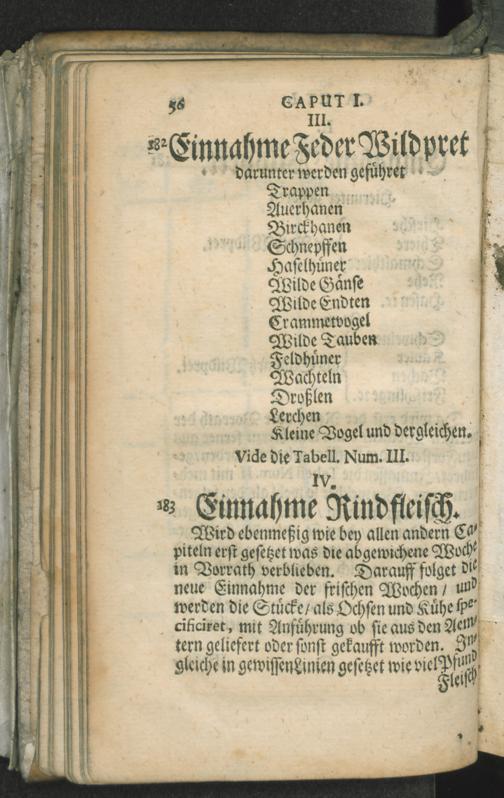 56 CAPUT I.
III.
182 Einnahme Feder Wildpret
darunter werden geführet
Trappen
Auerhanen
Birckhanen
Schnepffen
Haselhüner
Wilde Gänse
Wilde Endten
Crammetvogel
Wilde Tauben
Feldhüner
Wachteln
Droßlen
Lerchen
Kleine Vogel und dergleichen.
Vide die Tabell. Num. III.
IV.
183 Einnahme Rindfleisch.
Wird ebenmeßig wie bey allen andern Ca-
piteln erst gesetzet was die abgewichene Woche
in Vorrath verblieben. Darauff folget die
neue Einnahme der frischen Wochen / und
werden die Stücke / als Ochsen und Kühe spe-
cificiret, mit Anführung ob sie aus den Aem-
tern geliefert oder sonst gekaufft worden. In-
gleiche in gewissen Linien gesetzet wie viel Pfund
Fleisch